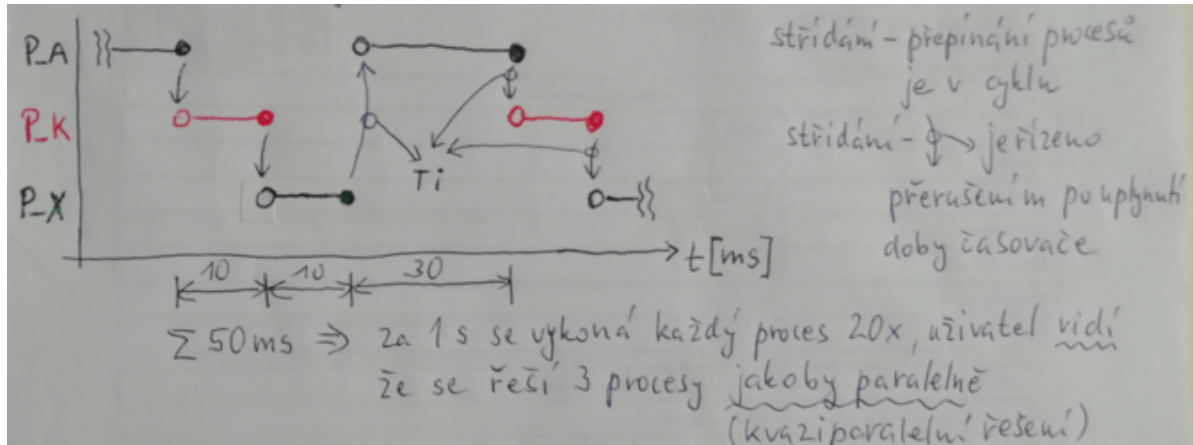 P_A
P_K
P_X
Ti
t[ms]
10 10 30
střídání - přepínání procesů
je v cyklu
střídání - je řízeno
přerušením po uplynutí
doby časovače
Σ 50ms ⇒ za 1 s se vykoná každý proces 20x, uživatel vidí
že se řeší 3 procesy jakoby paralelně
(kvaziparalelní řešení)